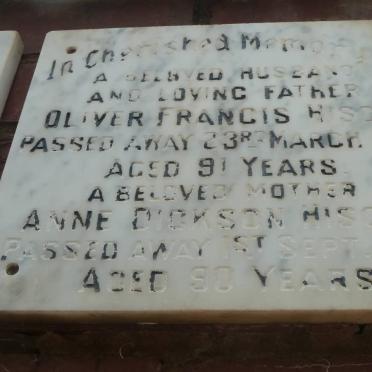 In Cherished Memory
A BELOVED HUSBAND
AND LOVING FATHER
OLIVER FRANCIS HISC
PASSED AWAY 23RD MARCH
AGED 91 YEARS
A BELOVED MOTHER
ANNE DICKSON HISC
PASSED AWAY 1ST SEPT
AGED 90 YEARS